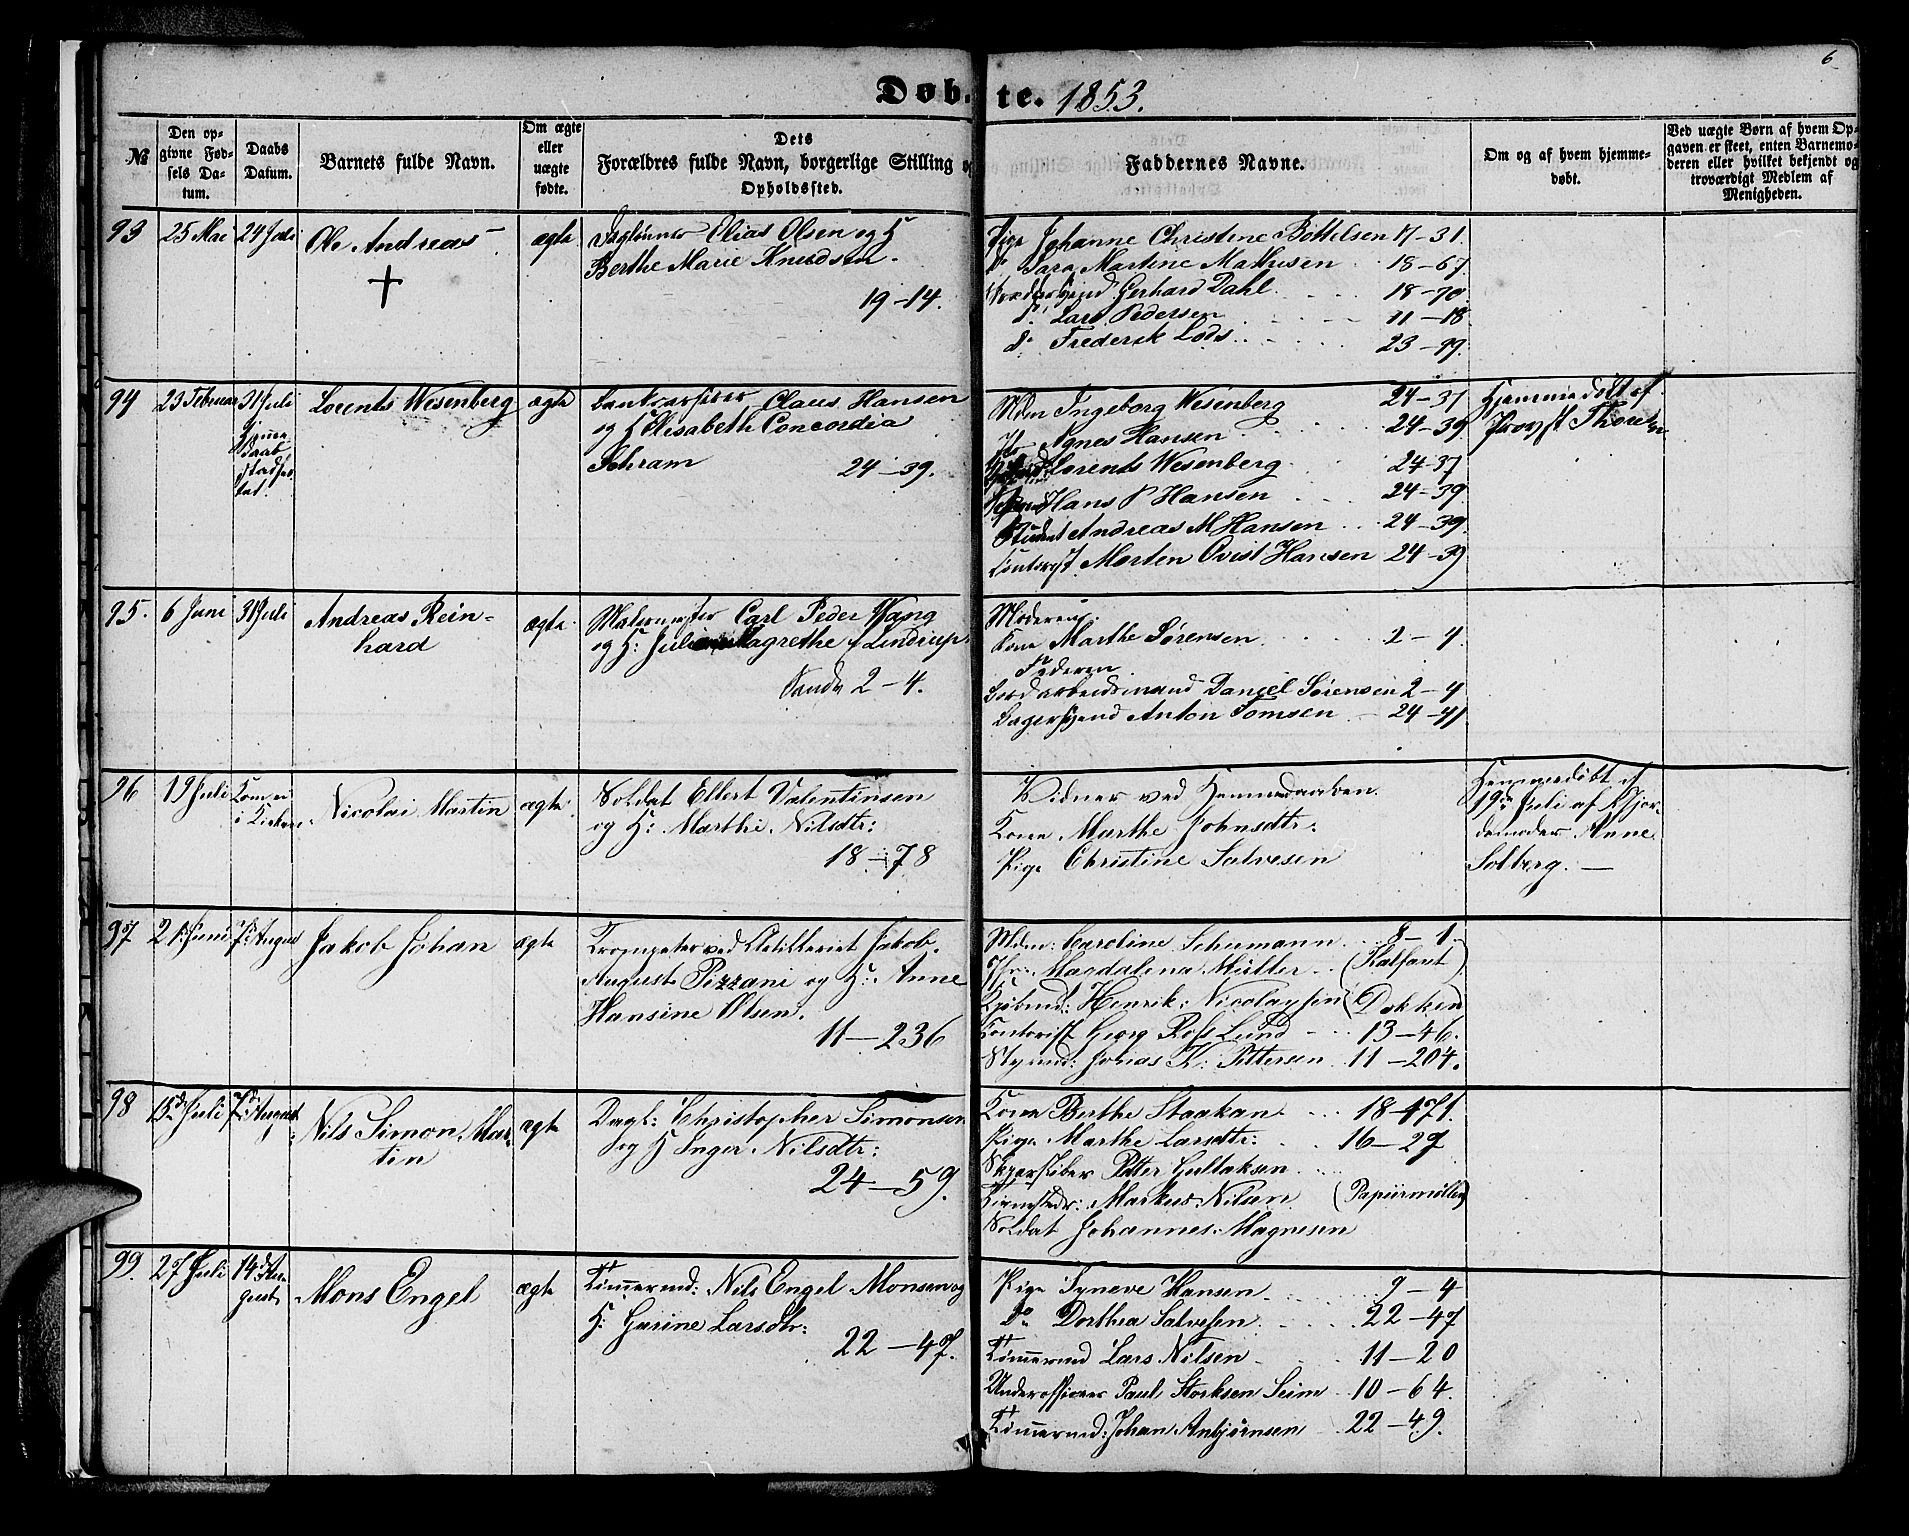 6
Døbte. 1853.
№
Den opgivne Fødsels Datum.
Daabs Datum.
Barnets fulde Navn.
Om ægte eller uægte fødte.
Dets Forældres fulde Navn, borgerlige Stilling og Opholdssted.
Faddernes Navne.
Om og af hvem hjemmedøbt.
Ved uægte Børn af hvem Opgaven er skeet, enten Barnemoderen eller hvilket bekjendt og troværdigt Medlem af Menigheden.
93 25 Mai 24 Juli Ole Andreas ægte
Daglønner Elias Olsen og H
Berthe Marie Knudsen.
19-14.
Pige Johanne Christine Bottelsen 17-31.
do Sara Martine Mathisen 18-67
Gerhard Dahl 18-70
do Lars Pedersen 11-18
do Frederik Lods 23-99.
94 23 Februar 31 Juli
Hjemmedaab stadfæstet.
Lorents Wesenberg ægte
Claus Hansen
og H Elisabeth Concordia
Schram 24-39.
Mdm Ingeborg Wesenberg 24-37
Agnes Hansen 24-39
Lorents Wesenberg 24-37
Hans P Hansen 24-39
Student Andreas M Hansen 24-39
Contorist Morten Qvist Hansen 24-39
Hjemmedøbt af
Provst
95. 6 Juni 31 Juli Andreas Reinhard ægte
Malermester Carl Peder Wang
og H: Magrethe f Lindrup
2-4.
Moderen.
Kone Marthe Sørensen 2-4
Faderen
Bordarbeidsmand Daniel Sørensen 2-4
Anton Tomsen 24-41
96 19 Juli Kom ei
i Kirken.
Nicolai Martin ægte
Soldat Ellert Valentinsen
og H: Marthe Nilsdtr:
18-78
Vidner ved Hjemmedaaben.
Kone Marthe Johnsdtr:
Pige Christine Salvesen
Hjemmedøbt d
19de Juli af Gjor-
demoder Anne
Solberg.
97 21 Juni 7 August Jakob Johan ægte
Trompeter ved Artilleriet Jakob
August Pizzani og H: Anne
Hansine Olsen.
11-236
Mdm: Caroline Schumann 8-1.
Jfr: Magdalena Müller (Kalfaret)
Kjøbmd: Henrik Nicolaysen (Dokken)
Contorist Georg Rose Lund 13-46.
Styrmd: Jonas K: Pettersen 11-204.
98 13de Juli 7de August Nils Simon Mar-
tin
ægte
Dagl: Christopher Simonsen
og H Inger Nilsdtr:
24-59.
Kone Berthe Staakan 18-171.
Pige Marthe Larsdtr: 16-27
Petter Gullaksen
Markus Nilsen (Papiirmøllen)
Soldat Johannes Magnesen
99. 27 Juli 14de Au-
gust
Mons Engel ægte
Tømmermd: Nils Engel Monsen og
H: Gurine Larsdtr:
22-47.
Pige Syneve Hansen 9-4
Do Dorthea Salvesen 22-47
Tømmermd Lars Nilsen 11-20
Underofficer Paul Storksen Seim 10-64.
Tømmermd: Johan Anbjørnsen 22-49.